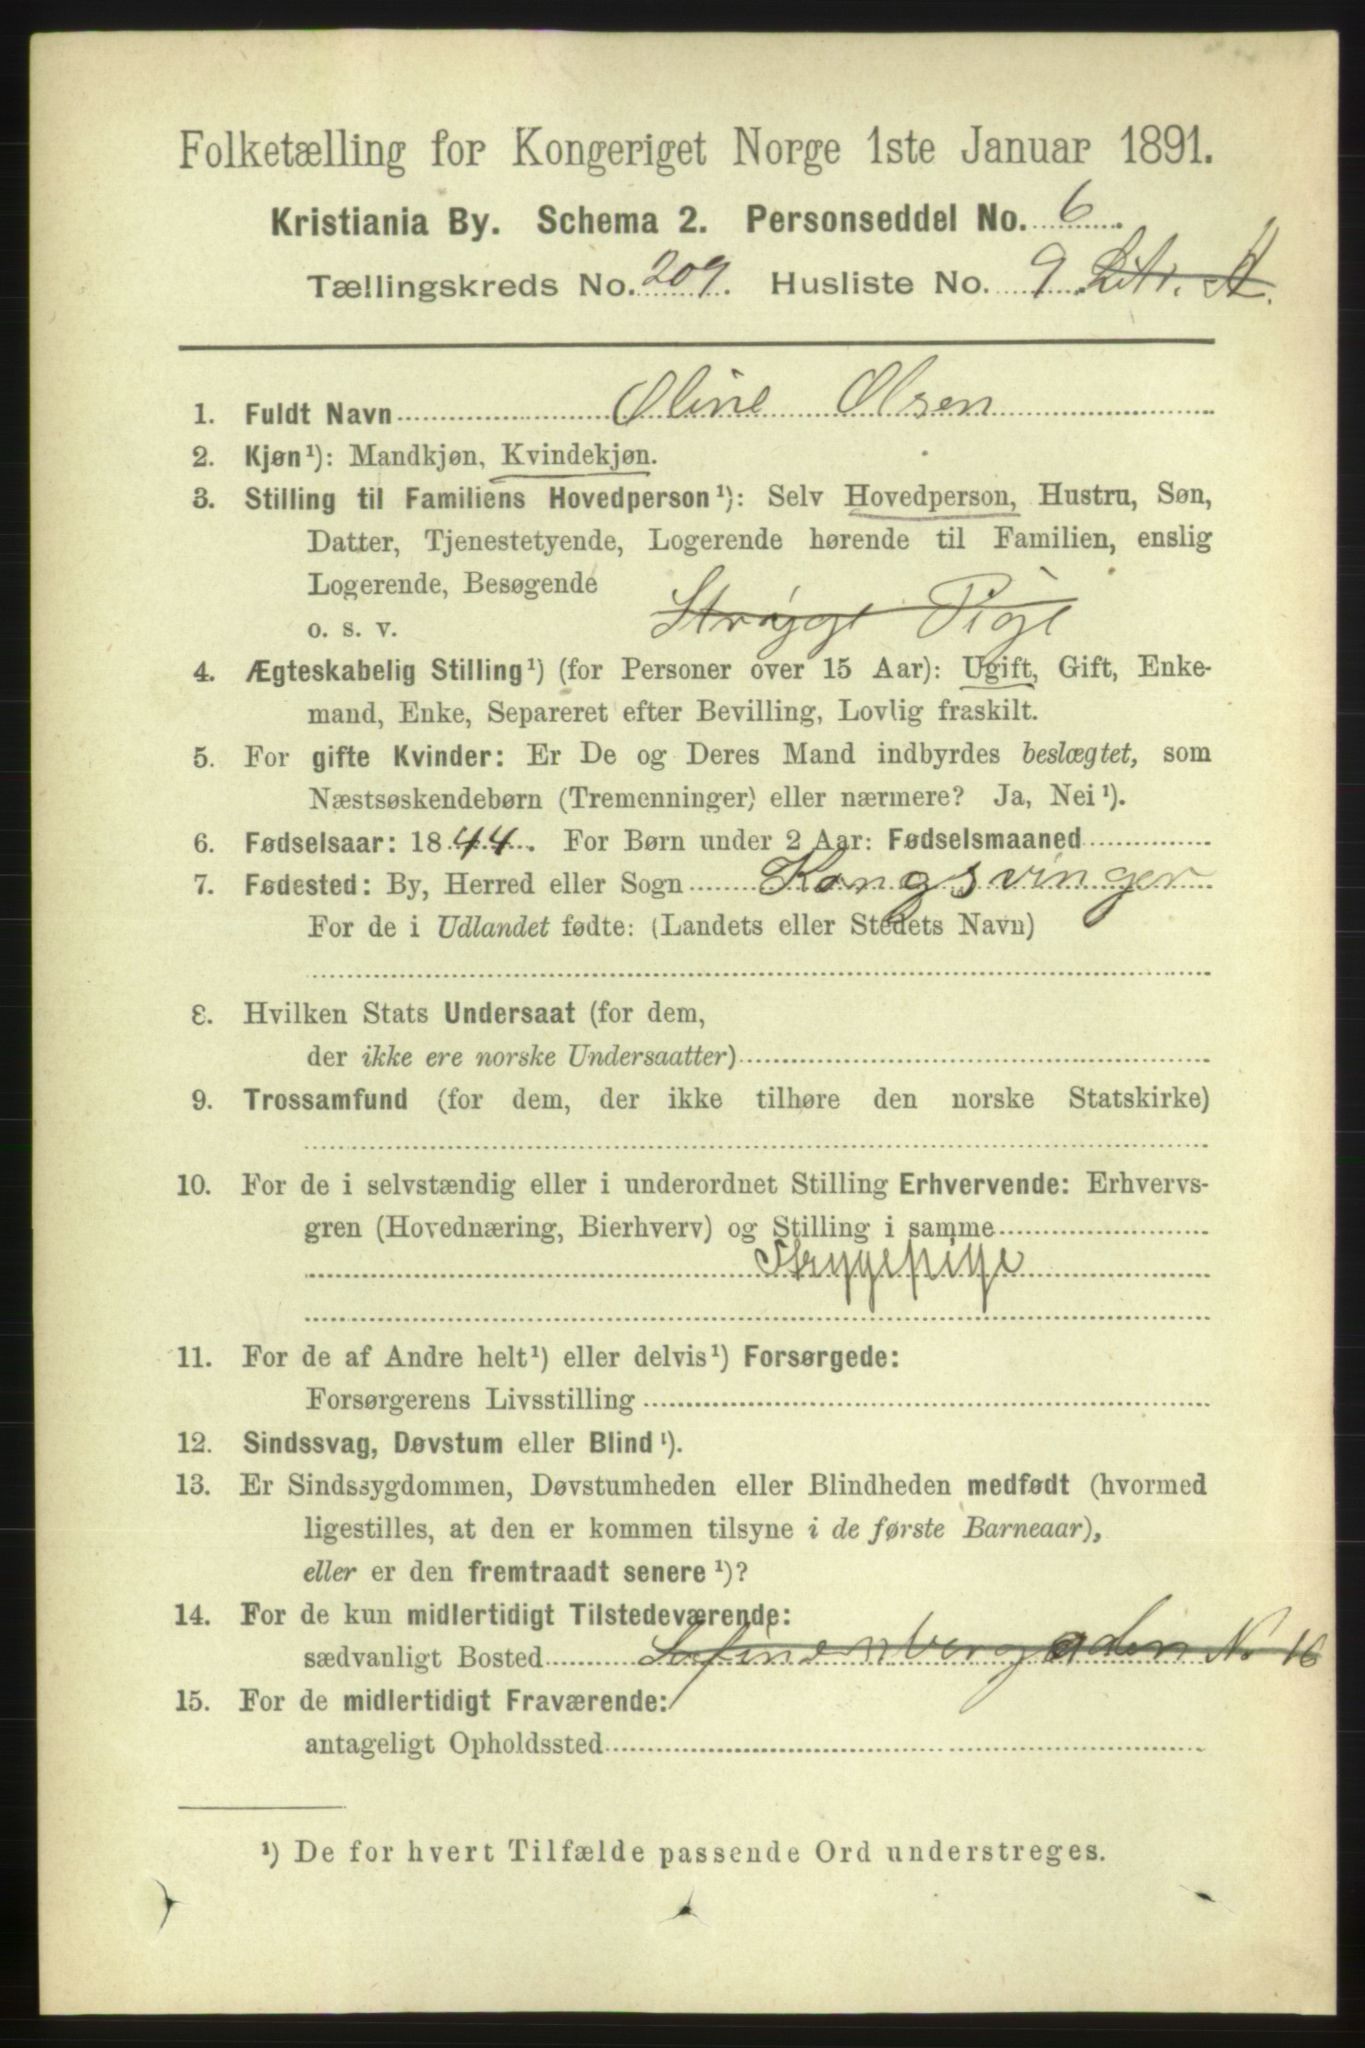 Folketælling for Kongeriget Norge 1ste Januar 1891.
Kristiania By. Schema 2. Personseddel No. 6
Tællingskreds No. 209. Husliste No. 9 Litr. A.
1. Fuldt Navn Oline Olsen
2. Kjøn¹): Mandkjøn, Kvindekjøn.
3. Stilling til Familiens Hovedperson¹): Selv Hovedperson, Hustru, Søn,
Datter, Tjenestetyende, Logerende hørende til Familien, enslig
Logerende, Besøgende
o. s. v. Strygge Pige
4. Ægteskabelig Stilling¹) (for Personer over 15 Aar): Ugift, Gift, Enke-
mand, Enke, Separeret efter Bevilling, Lovlig fraskilt.
5. For gifte Kvinder: Er De og Deres Mand indbyrdes beslægtet, som
Næstsøskendebørn (Tremenninger) eller nærmere? Ja, Nei¹).
6. Fødselsaar: 1844. For Børn under 2 Aar: Fødselsmaaned
7. Fødested: By, Herred eller Sogn Kongsvinger
For de i Udlandet fødte: (Landets eller Stedets Navn)
8. Hvilken Stats Undersaat (for dem,
der ikke ere norske Undersaatter)
9. Trossamfund (for dem, der ikke tilhøre den norske Statskirke)
10. For de i selvstændig eller i underordnet Stilling Erhvervende: Erhvervs-
gren (Hovednæring, Bierhverv) og Stilling i samme
Strygepige
11. For de af Andre helt¹) eller delvis¹) Forsørgede:
Forsørgerens Livsstilling
12. Sindssvag, Døvstum eller Blind¹).
13. Er Sindssygdommen, Døvstumheden eller Blindheden medfødt (hvormed
ligestilles, at den er kommen tilsyne i de første Barneaar),
eller er den fremtraadt senere¹)?
14. For de kun midlertidigt Tilstedeværende:
sædvanligt Bosted No 16
15. For de midlertidigt Fraværende:
antageligt Opholdssted
¹) De for hvert Tilfælde passende Ord understreges.